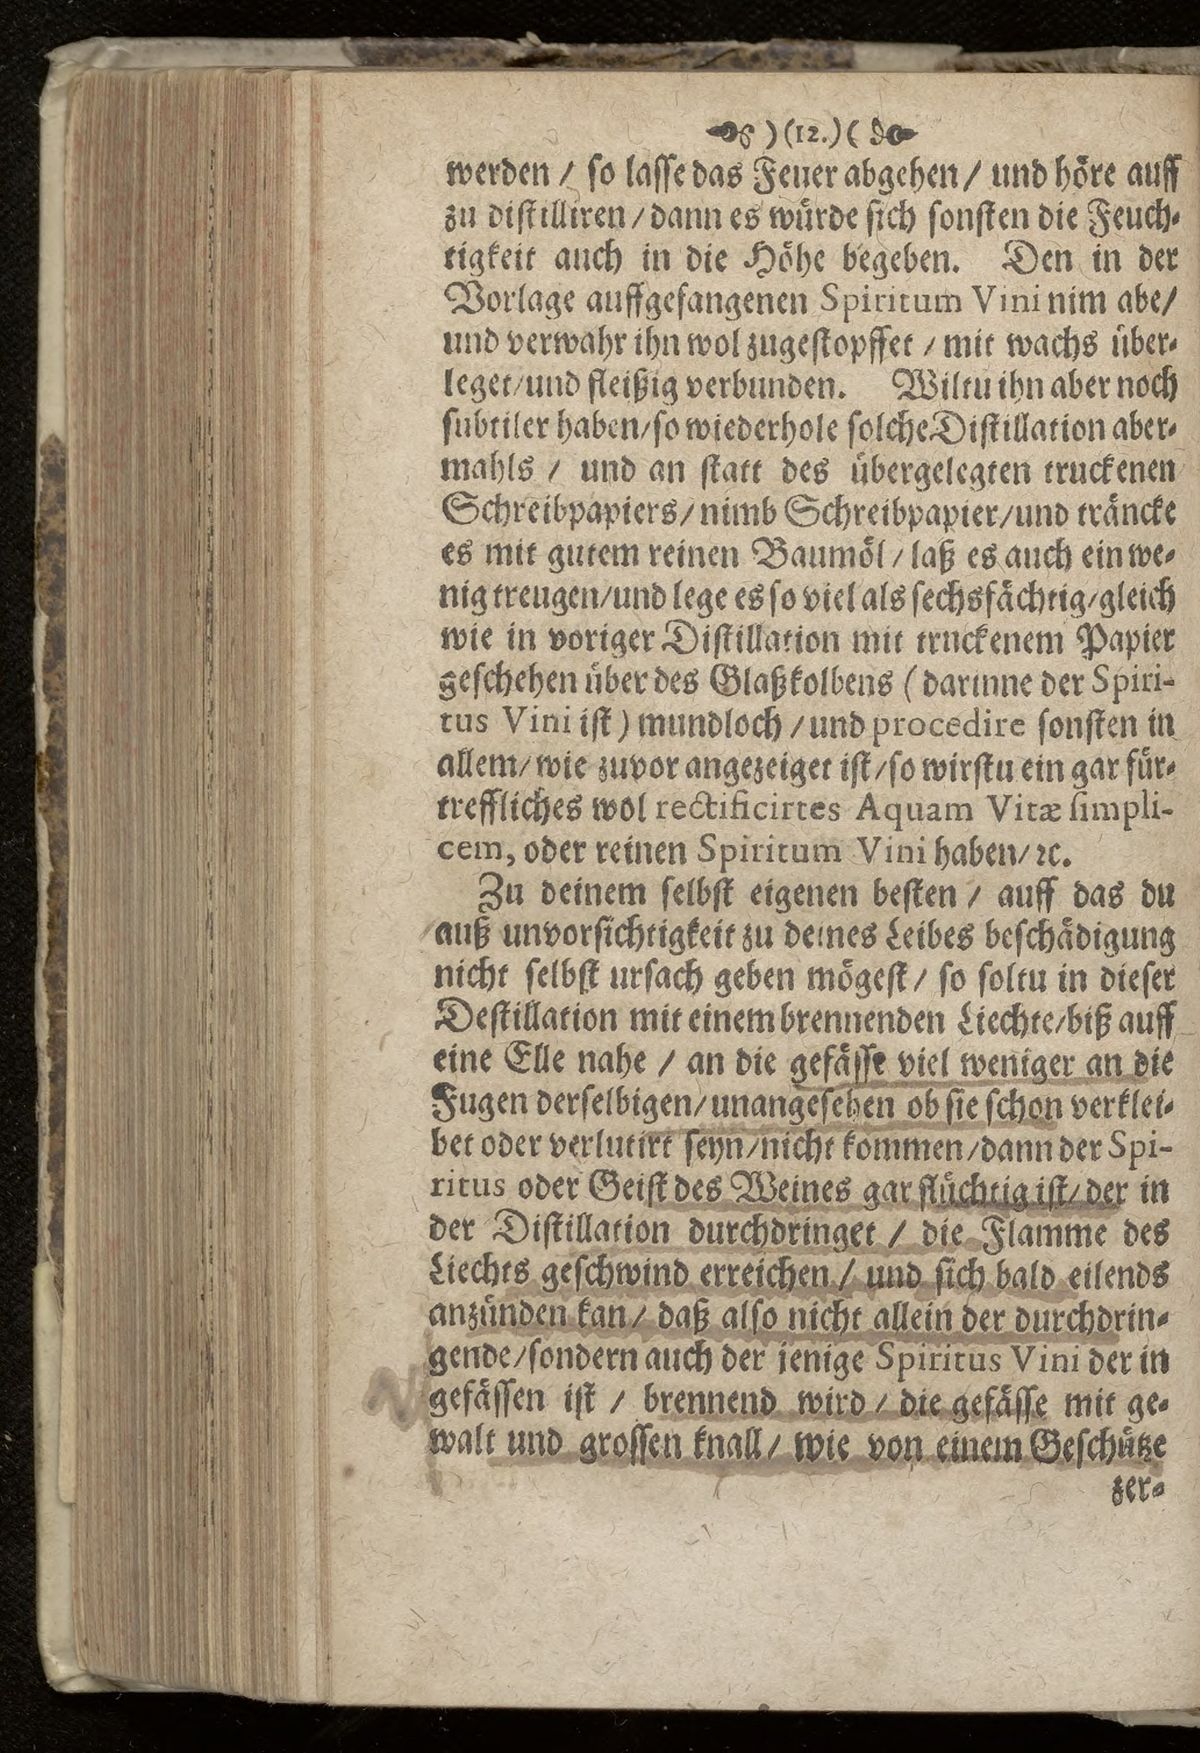 )(12.)(
werden / so lasse das Feuer abgehen / und höre auff
zu distilliren / dann es würde sich sonsten die Feuch-
tigkeit auch in die Höhe begeben. Den in der
Vorlage auffgefangenen Spiritum Vini nim abe /
und verwahr ihn wol zugestopffet / mit wachs über-
leget / und fleißig verbunden. Wiltu ihn aber noch
subtiler haben / so wiederhole solche Distillation aber-
mahls / und an statt des übergelegten truckenen
Schreibpapiers / nimb Schreibpapier / und träncke
es mit gutem reinen Baumöl / laß es auch ein we-
nig treugen / und lege es so viel als sechsfächtig / gleich
wie in voriger Distillation mit truckenem Papier
geschehen über des Glaßkolbens ( darinne der Spiri-
tus Vini ist ) mundloch / und procedire sonsten in
allem / wie zuvor angezeiget ist / so wirstu ein gar für-
treffliches wol rectificirtes Aquam Vitæ simpli-
cem, oder reinen Spiritum Vini haben / ꝛc.
Zu deinem selbst eigenen besten / auff das du
auß unvorsichtigkeit zu deines Leibes beschädigung
nicht selbst ursach geben mögest / so soltu in dieser
Destillation mit einem brennenden Liechte / biß auff
eine Elle nahe / an die gefässe viel weniger an die
Fugen derselbigen / unangesehen ob sie schon verklei-
bet oder verlutirt seyn / nicht kommen / dann der Spi-
ritus oder Geist des Weines gar flüchtig ist / der in
der Distillation durchdringet / die Flamme des
Liechts geschwind erreichen / und sich bald eilends
anzünden kan / daß also nicht allein der durchdrin-
gende / sondern auch der jenige Spiritus Vini der in
gefässen ist / brennend wird / die gefässe mit ge-
walt und grossen knall / wie von einem Geschütze
zer-